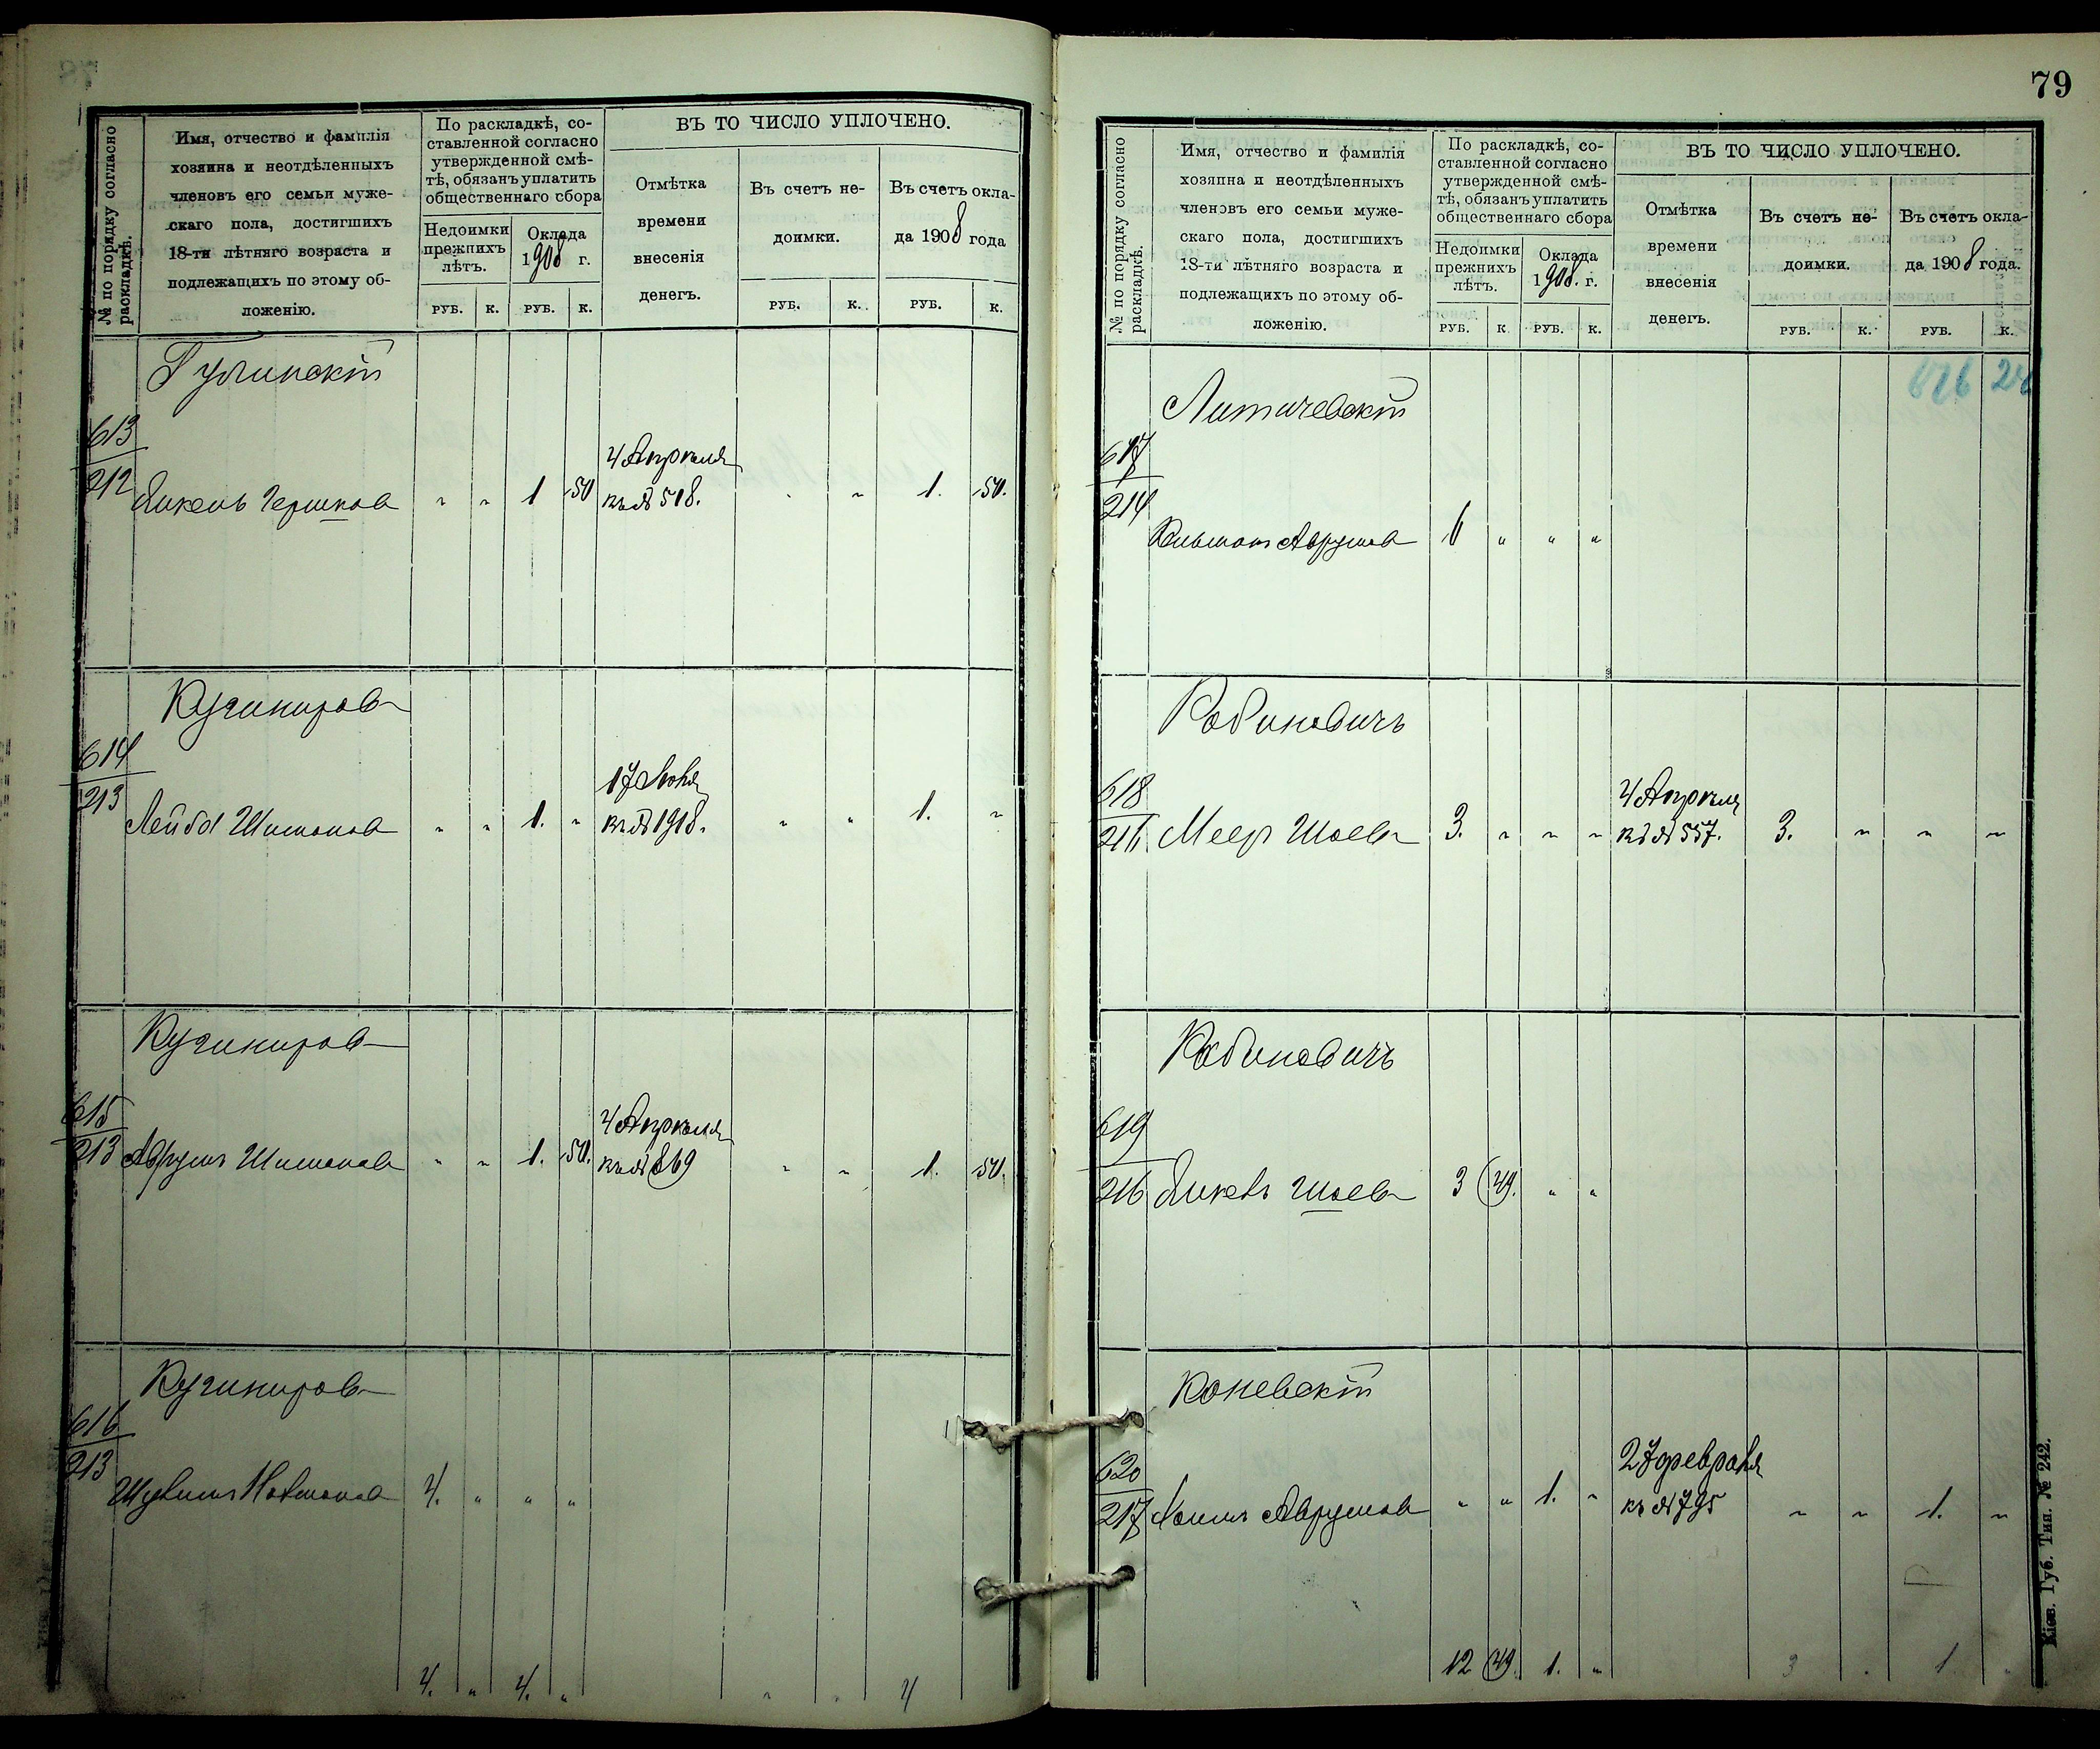 № по порядку согласно раскладкѣ.
Имя, отчество и фамилія
хозяина и неотдѣленныхъ
членовъ его семьи муже-
скаго пола, достигшихъ
18-ти лѣтняго возраста и
подлежащихъ по этому об-
ложенію.
По раскладкѣ, со-
ставленной согласно
утвержденной смѣ-
тѣ, обязанъ уплатить
общественнаго сбора
Недоимки
прежнихъ
лѣтъ.
Оклада
1908 г.
РУБ. К. РУБ. К.
ВЪ ТО ЧИСЛО УПЛОЧЕНО.
Отмѣтка
времени
внесенія
денегъ.
Въ счетъ не-
доимки.
Въ счетъ окла-
да 1908 года
РУБ. К. РУБ. К.
613
212
Янкель Гершков " " 1 50
4 Апрѣля
къ № 518.
" " 1. 50.
Кучикиров
614
213
Лейба Шимонов " " 1. "
17 Іюня
къ № 1918.
" " 1. "
Кучикиров
615
213
Аврум Шимонов " " 1. 50.
4 Апрѣля
къ № 869
" " 1. 50.
Кучикиров
616
213
4. " " "
4. " 4. " " " 4
79
№ по порядку согласно раскладкѣ.
Имя, отчество и фамилія
хозяина и неотдѣленныхъ
членовъ его семьи муже-
скаго пола, достигшихъ
18-ти лѣтняго возраста и
подлежащихъ по этому об-
ложенію.
По раскладкѣ, со-
ставленной согласно
утвержденной смѣ-
тѣ, обязанъ уплатить
общественнаго сбора
Недоимки
прежнихъ
лѣтъ.
Оклада
1908. г.
РУБ. К. РУБ. К.
ВЪ ТО ЧИСЛО УПЛОЧЕНО.
Отмѣтка
времени
внесенія
денегъ.
Въ счетъ не-
доимки.
Въ счетъ окла-
да 1908 года.
РУБ. К. РУБ. К.
Литичевскій
617
214
Аврумов 6 " " "
Рабиновичъ
618
216
Меер Шоев 3. " " "
4 Апрѣля
къ № 557.
3. " " "
Рабиновичъ
619
216
Янкель Шоев 3 49. " "
Каневскій
620
217
Хаим Аврумов " " 1. "
27 февраля
къ № 795
" " 1. "
12 49. 1. " 3 " 1 "
Кіев. Губ. Тип. № 242.